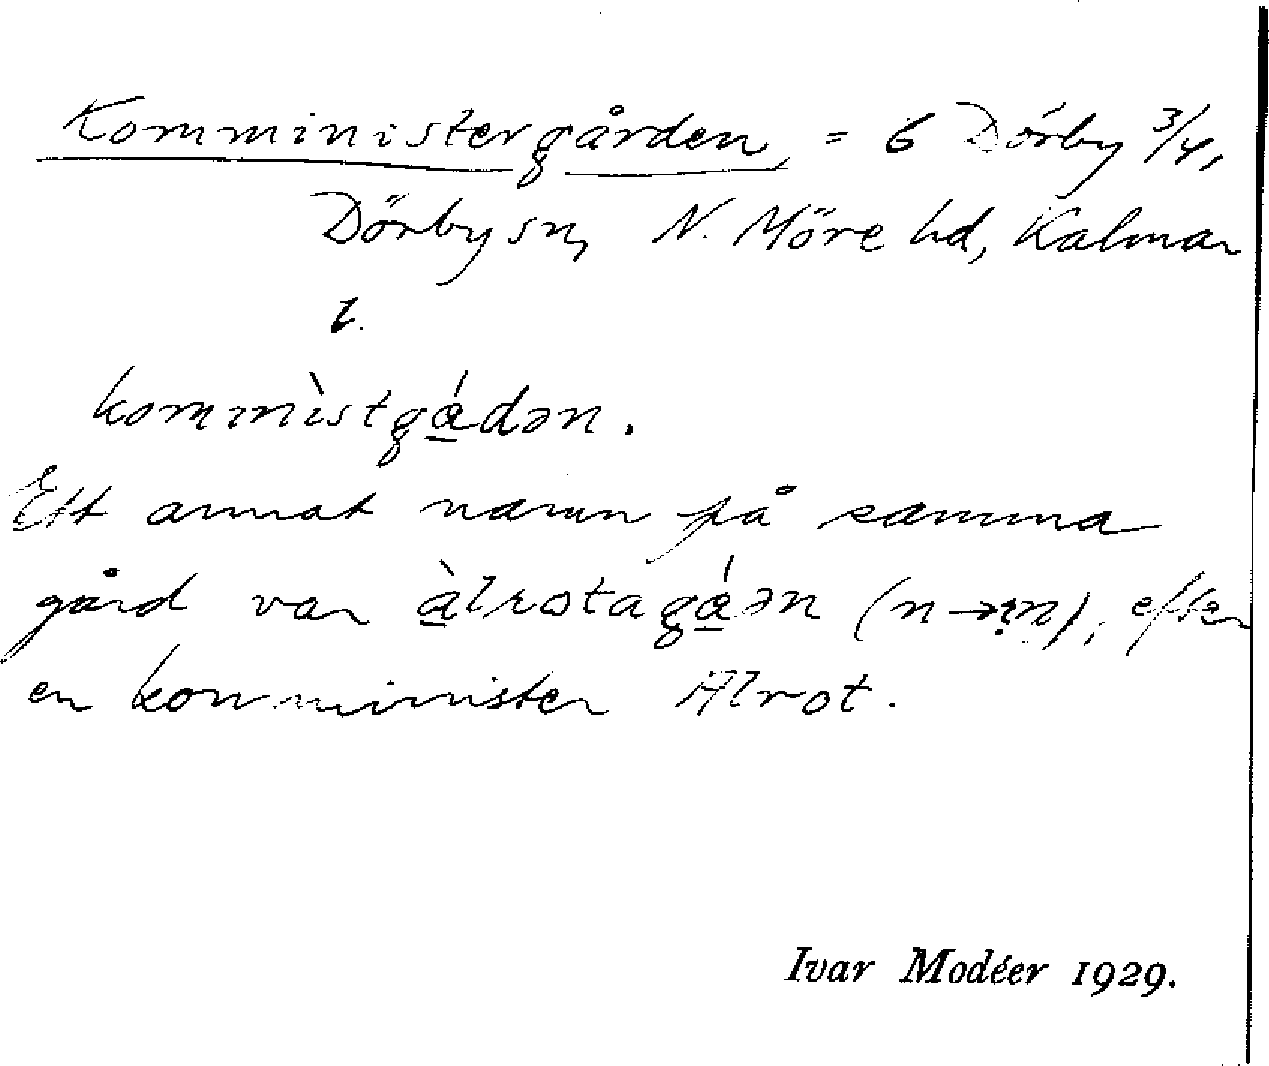 Komministergården, = 6 Dörby 3/4,
Dörby sn, N. Möre hd, Kalmar
l.
kommìstgá̱dən.
Ett annat namn på samma
gård var à̱lrotagá̱ən (n→ṃn), efter
en komminister Alrot.
Ivar Modéer 1929.